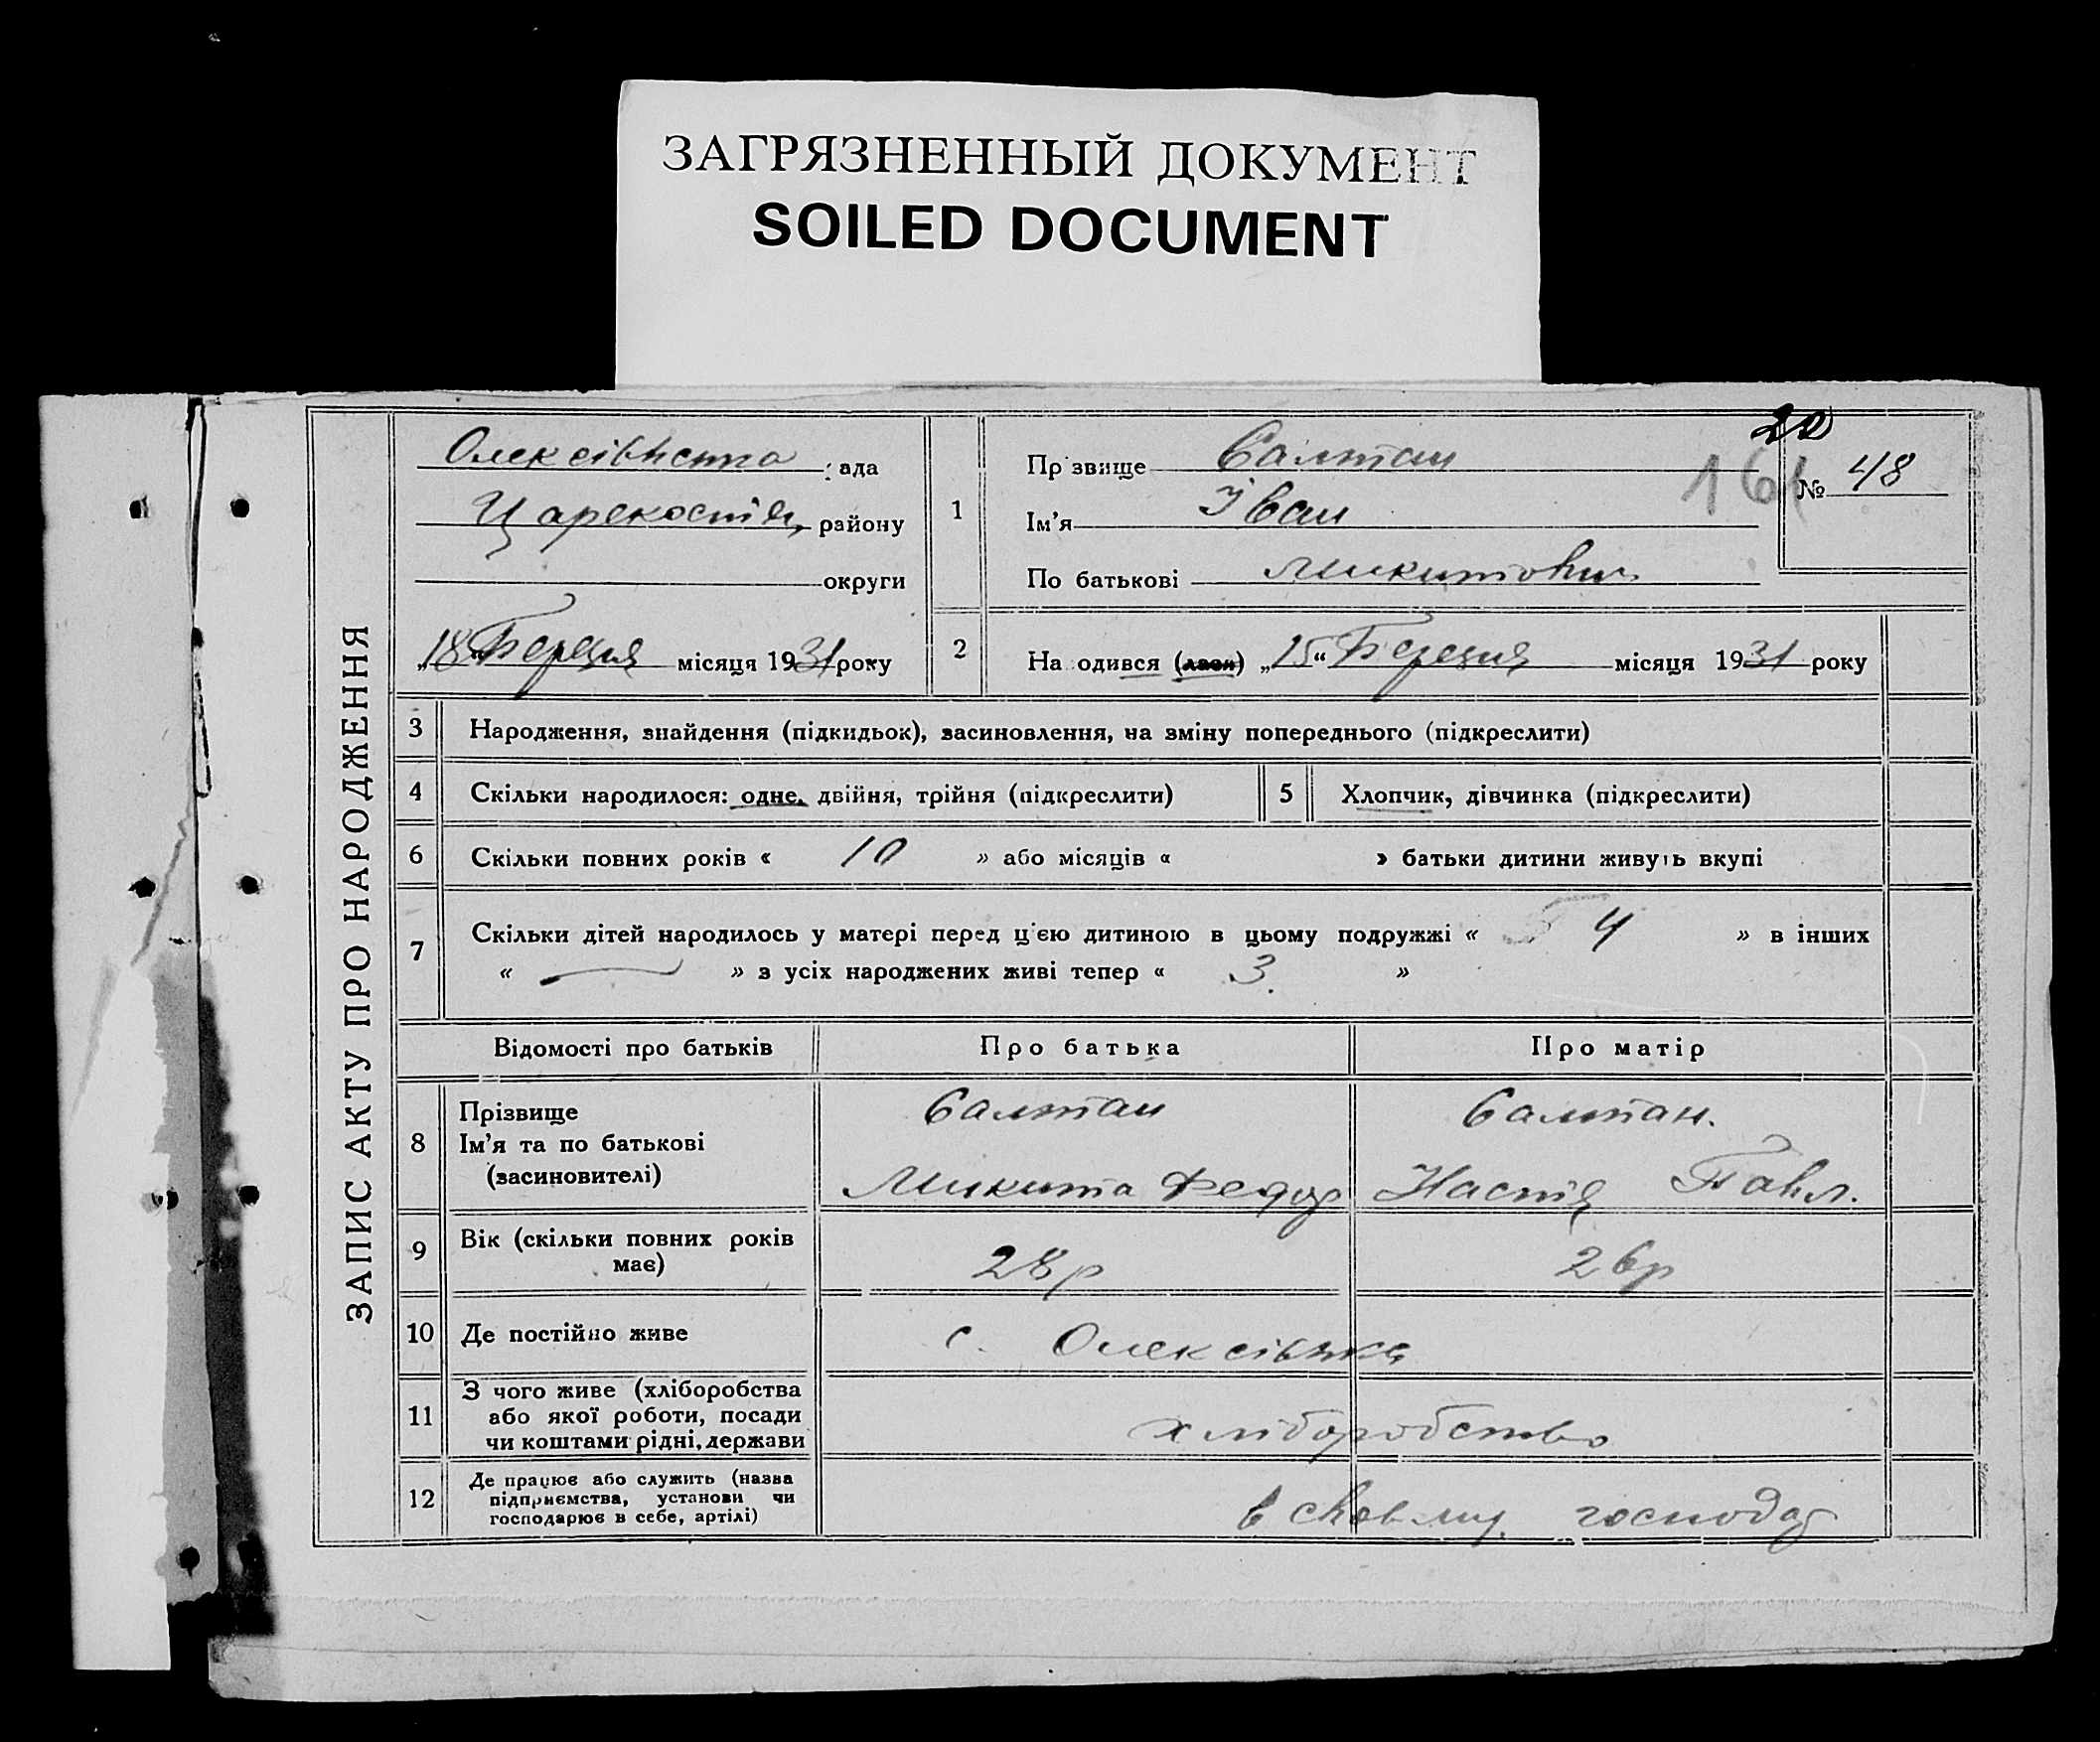 ЗАГРЯЗНЕННЫЙ ДОКУМЕНТ
SOILED DOCUMENT
ЗАПИС АКТУ ПРО НАРОДЖЕННЯ
Олексіївська рада
району
округи
„18“ Березня місяця 1931 року
20
161
№ 48
1
Прізвище Салтан
Ім'я Іван
По батькові Микитович
2 Народився (лася) „15“ Березня місяця 1931 року
3 Народження, знайдення (підкидьок), засиновлення, на зміну попереднього (підкреслити)
4 Скільки народилося: одне, двійня, трійня (підкреслити) 5 Хлопчик, дівчинка (підкреслити)
6 Скільки повних років « 10 » або місяців « » батьки дитини живуть вкупі
7 Скільки дітей народилось у матері перед ц'єю дитиною в цьому подружжі « 4 » в інших
« — » з усіх народжених живі тепер « 3. »
Відомості про батьків Про батька Про матір
8 Прізвище Салтан Салтан.
Ім'я та по батькові
(засиновителі) Микита Федор Настя Павл.
9 Вік (скільки повних років
має) 28 р 26 р
10 Де постійно живе с. Олексіївка
11 З чого живе (хліборобства
або якої роботи, посади
чи коштами рідні, держави хліборобство
12 Де працює або служить (назва
підприємства, установи чи
господарює в себе, артілі) в своєму господар